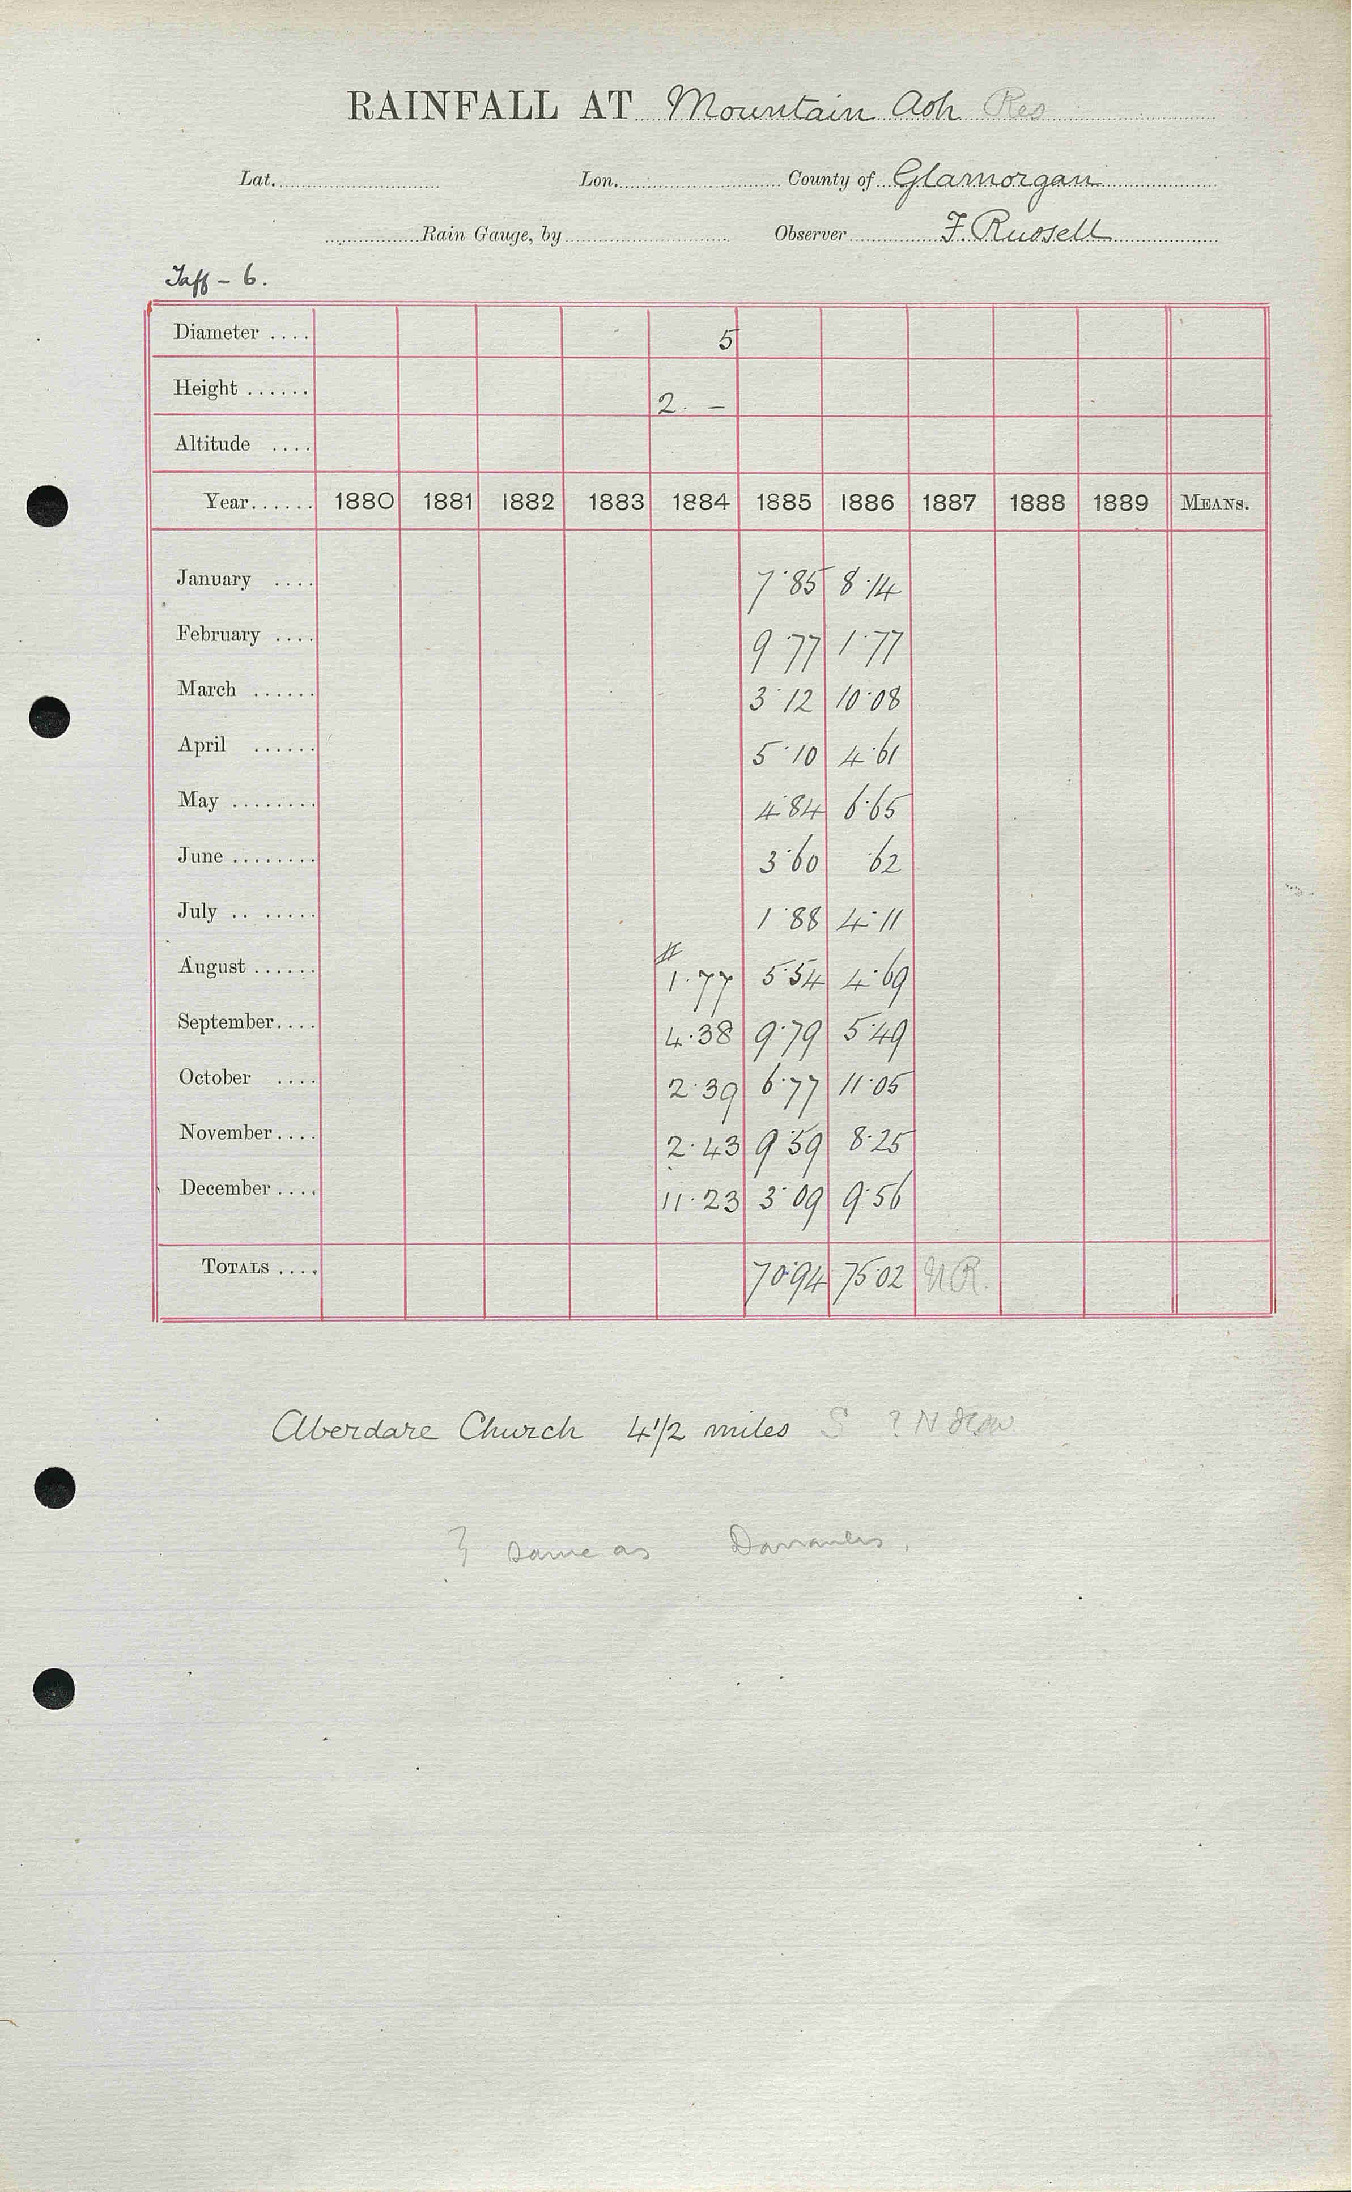 RAINFALL AT Mountain Ash Res
Lat. Lon. County of Glamorgan
Rain Gauge, by Observer F. Russell
Taff - 6.
Diameter .... 5
Height ...... 2 -
Altitude ....
Year ...... 1880 1881 1882 1883 1884 1885 1886 1887 1888 1889 MEANS.
January .... 7.85 8.14
February .... 9.77 1.77
March ...... 3.12 10.08
April ...... 5.10 4.61
May ........ 4.84 6.65
June ........ 3.60 .62
July .. ..... 1.88 4.11
August ...... # 1.77 5.54 4.69
September.... 4.38 9.79 5.49
October .... 2.39 6.77 11.05
November.... 2.43 9.59 8.25
December .... 11.23 3.09 9.56
TOTALS .... 70.94 75.02 N.R.
Aberdare Church 4 1/2 miles S ? N
? same as